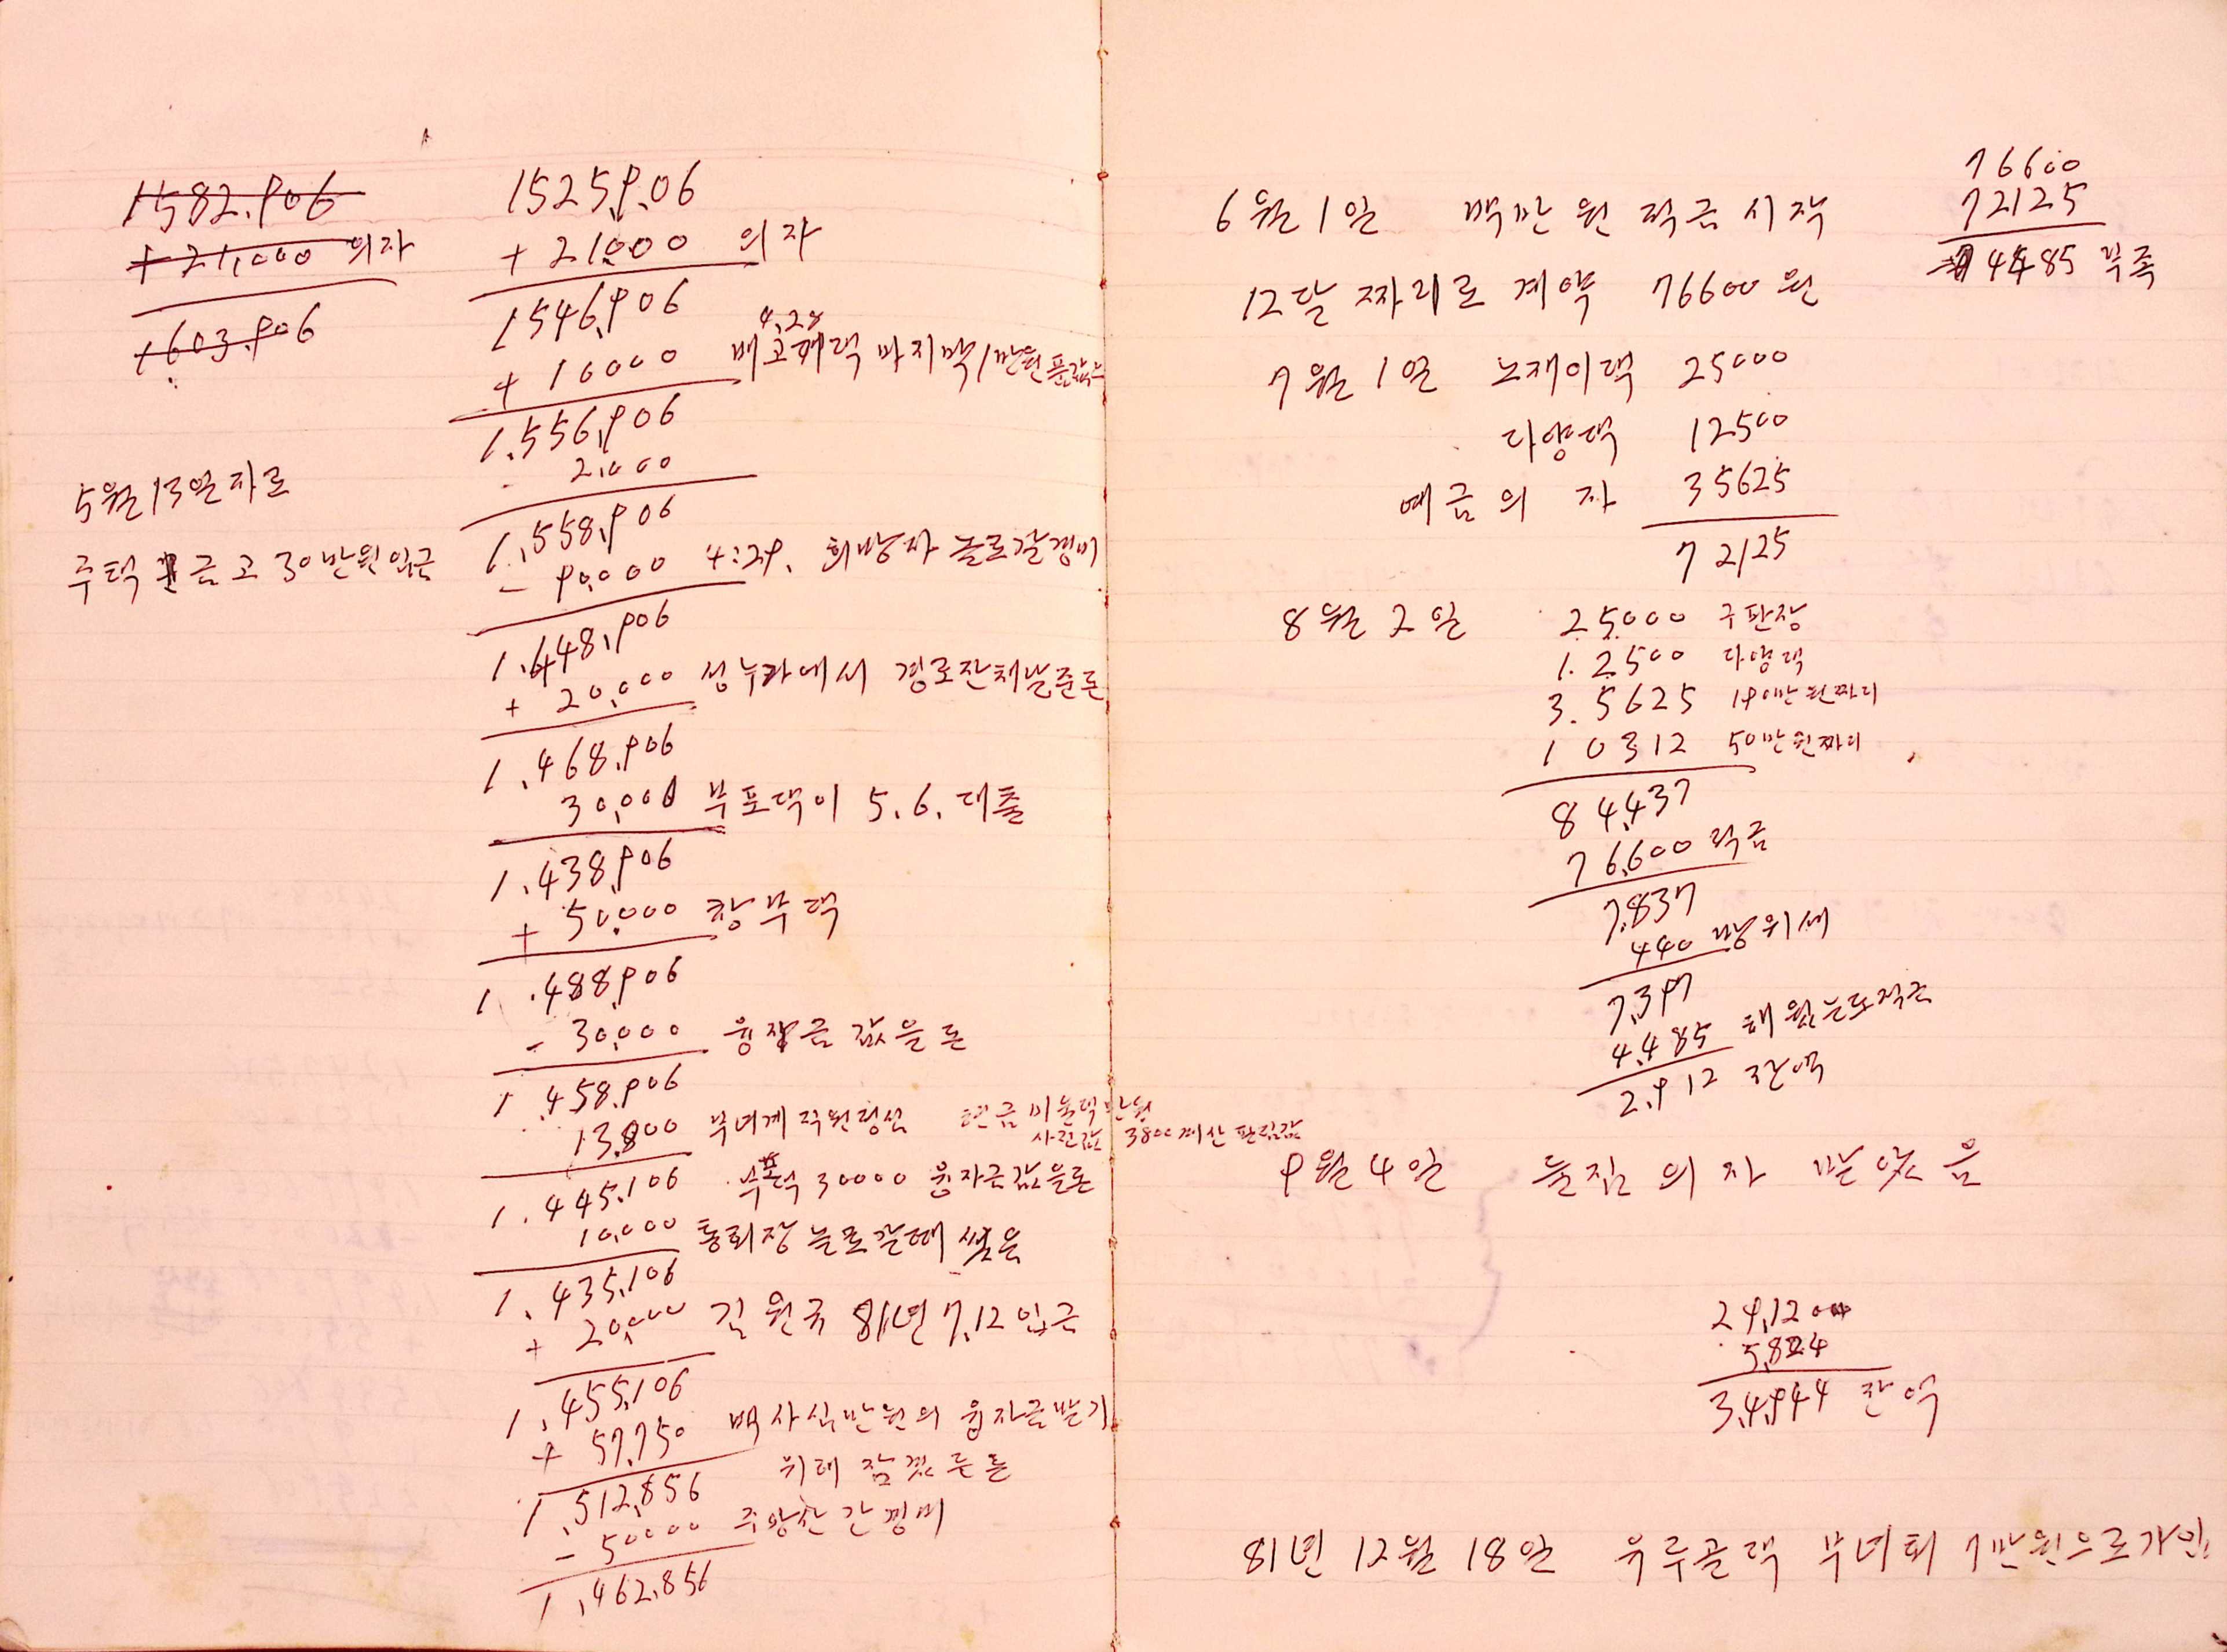 1582.906
+ 21,000 의자
1603.906
5월 13일자로
주택금고 30만원입금
1525,9.06
+ 21000 의자
1546,906
4.28
+ 10000 배고개댁 마지막 1만원
1.556,906
- 2,000
1,558,906
- 90,000 4:29. 희망자 놀로갈경비
1.448,906
+ 20,000 성누가에서 경로잔채날준돈
1.468,906
30,000 부포댁이 5.6. 대출
1.438,906
+ 50,000 창부댁
1.488,906
- 30,000 융자금 값을돈
1 458,906
13,800 부녀게 직원 현금 미놀댁 만원
사진값 3800 게산
1.445,106 부포댁 30000 융자금값을돈
10,000 통회장 놀로갈때 썻음
1.435,106
+ 20,000 김원국 81년 7.12 입금
1.455,106
+ 57,750 백사십만원의 융자금받기
1.512,856 위해 잠겻든돈
- 50000 주왕산간경비
1,462,856
6월 1일 백만원 적금시작
76600
72125
4485 부족
12달 짜리로 계약 76600원
7월 1일 노재이댁 25000
다양댁 12500
예금의자 35625
72125
8월 2일 25000 구판장
1.2500 다양댁
3.5625 190만원짜리
10312 50만원짜리
84,437
76,600 적금
7,837
440 방위세
7,397
4,485 해원논도적금
2,912 잔액
9월 4일 돈집 의자 받앗음
29,120
5,824
3,4,944 잔액
81년 12월 18일 유루골댁 부녀회 7만원으로가입